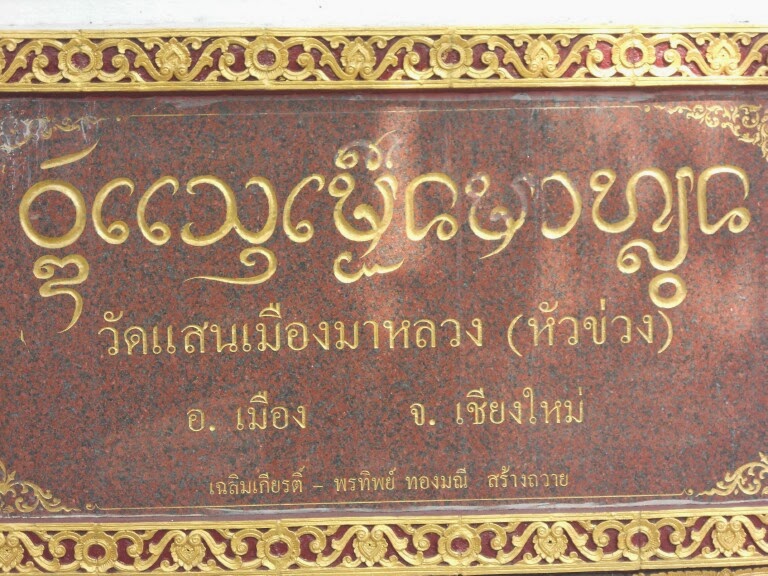 ᩅᩢ᩠ᨯᩈᩯ᩠ᨶᨾᩮᩬᩨᨦᨾᩣᩉᩖ᩠ᩅᨦ
วัดแสนเมืองมาหลวง (หัวข่วง)
อ. เมือง จ. เชียงใหม่
เฉลิมเกียรติ์ – พรทิพย์ ทองมณี สร้างถวาย